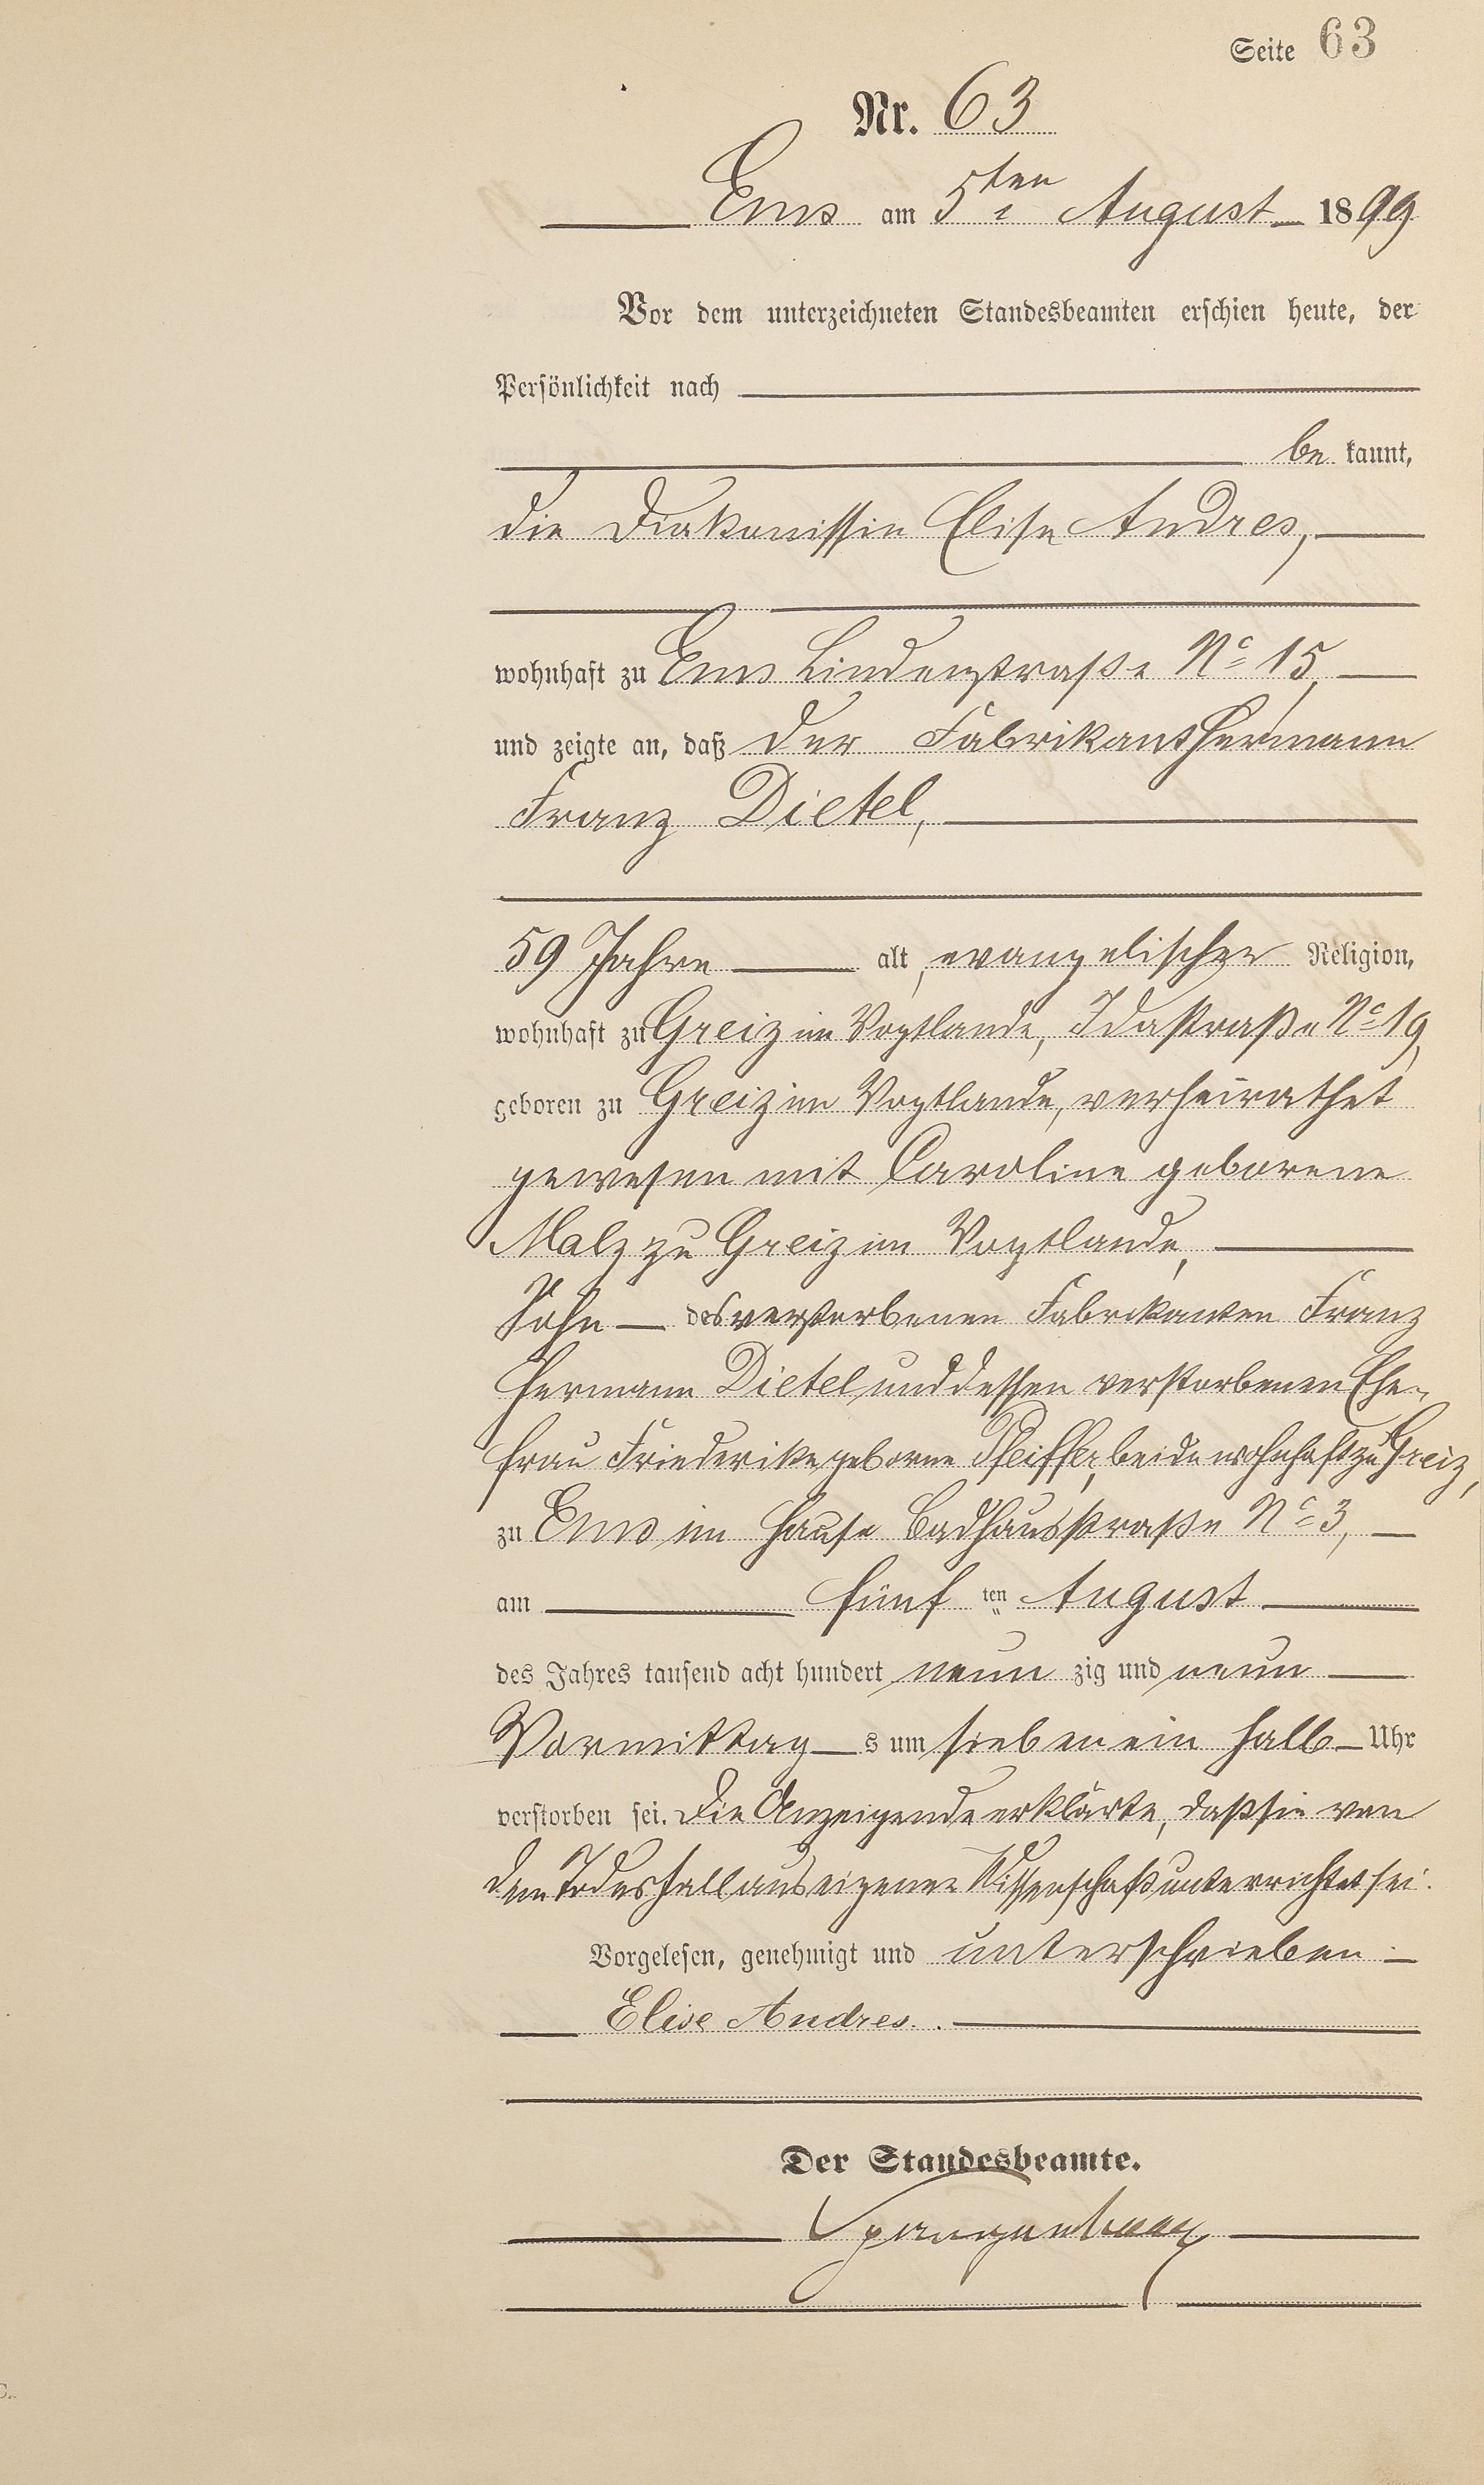 Seite 63
Nr. 63
Ems am 5ten August 1899
Vor dem unterzeichneten Standesbeamten erschien heute, der
Persönlichkeit nach
be kannt,
die Diakonissin Elise Andres,
wohnhaft zu Ems Lindenstraße No 15,
und zeigte an, daß der Fabrikant Hermann
Franz Dietel,
59 Jahre alt, evangelischer Religion,
wohnhaft zu Greiz im Vogtlande, Idastraße No 19,
geboren zu Greiz im Vogtlande, verheirathet
gewesen mit Caroline geborene
Malz zu Greiz im Vogtlande,
Sohn des verstorbenen Fabrikanten Franz
Hermann Dietel und dessen verstorbenen Ehe-
frau Friederike geborne Pfeiffer, beide wohnhaft zu Greiz,
zu Ems im Hause Badhausstraße No 3,
am fünf ten August
des Jahres tausend acht hundert neun zig und neun
Vormittag s um sieben ein halb Uhr
verstorben sei. Die Anzeigende erklärte, daß sie von
dem Todesfall aus eigener Wissenschaft unterrichtet sei.
Vorgelesen, genehmigt und unterschrieben
Elise Andres.
Der Standesbeamte.